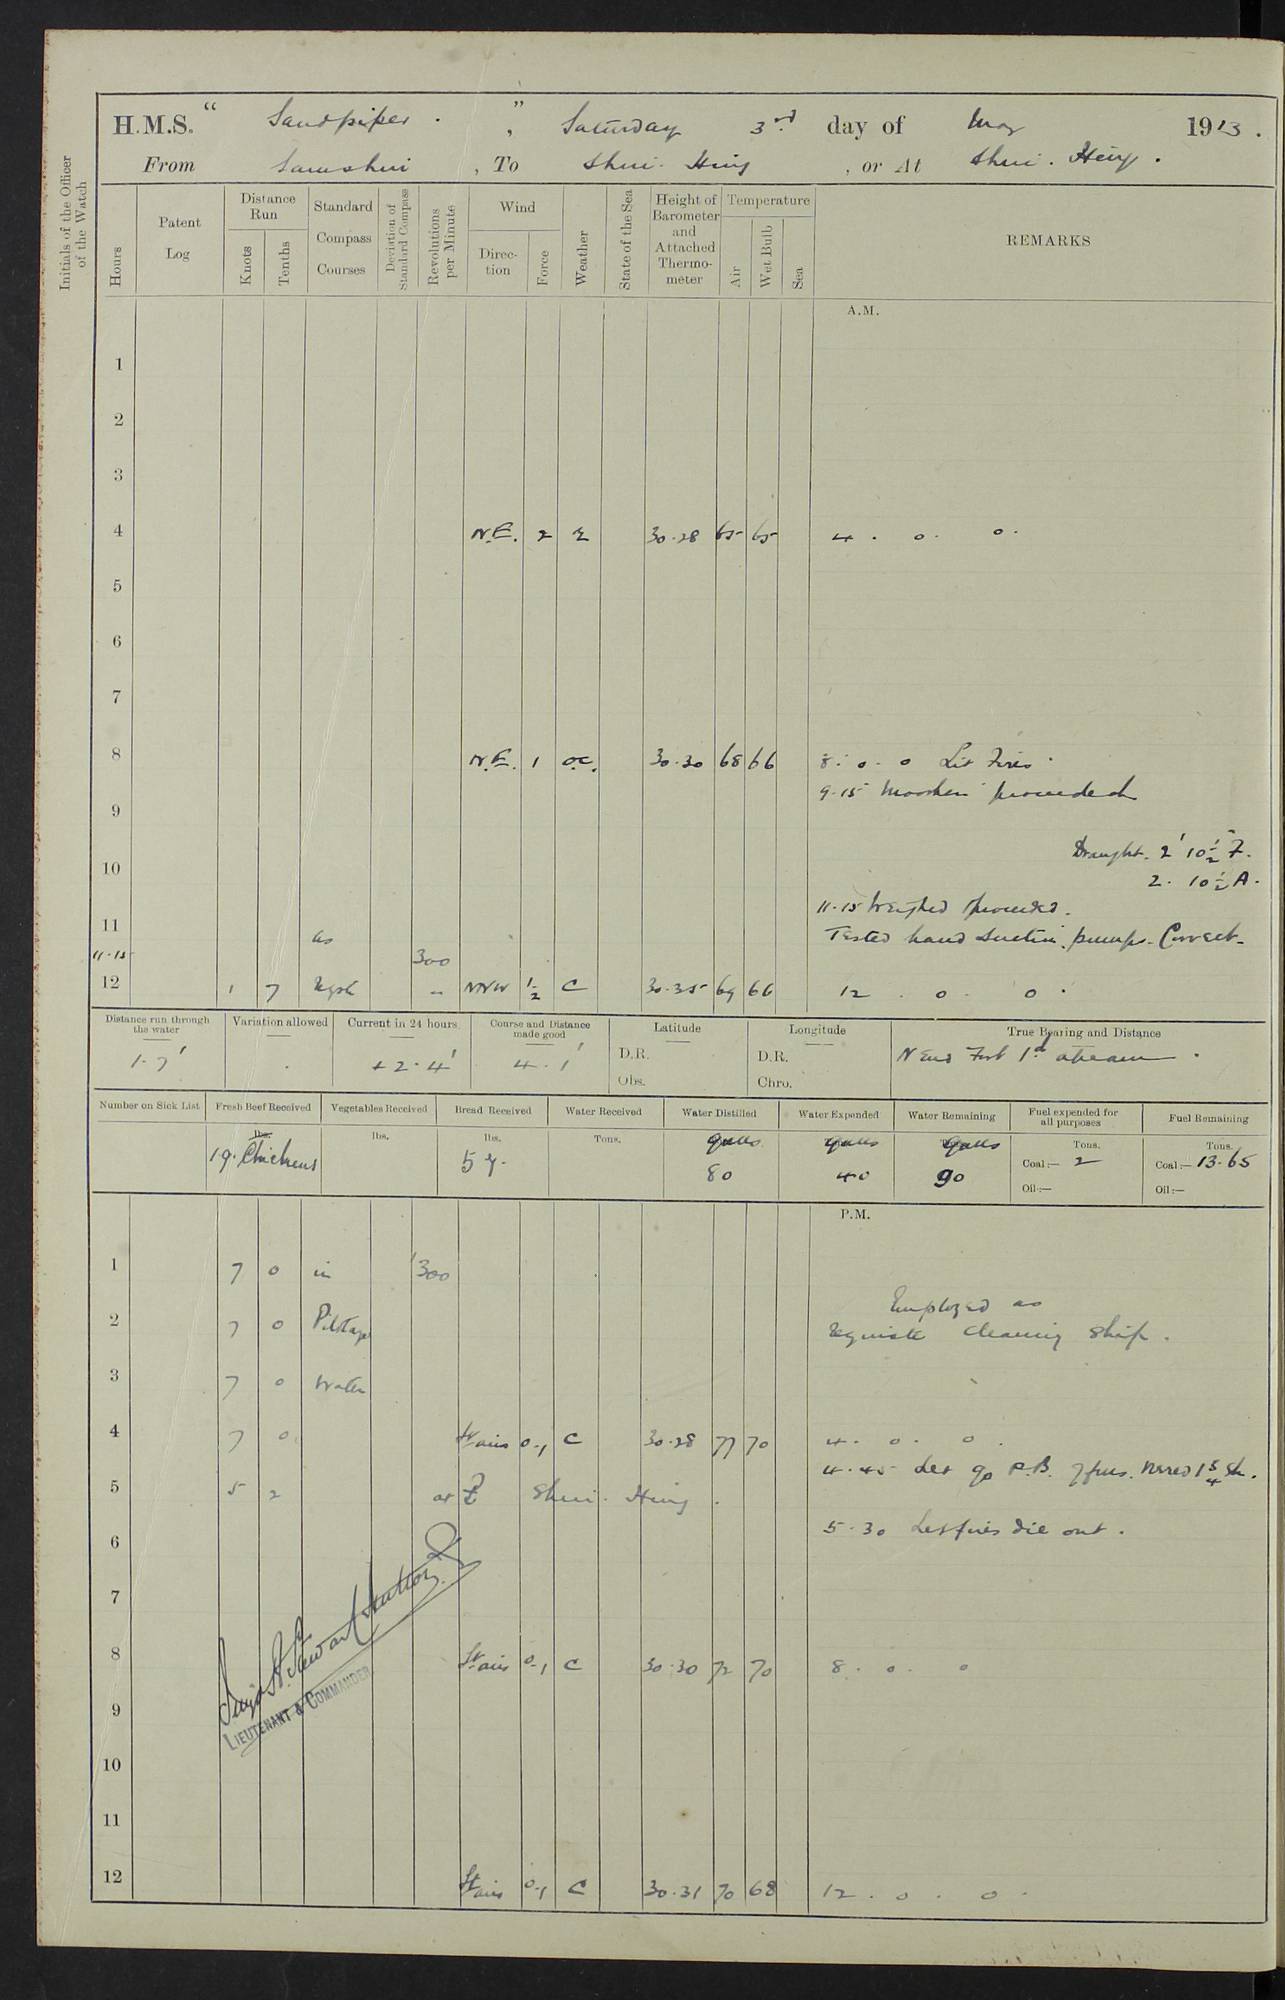 H.M.S. " Sandpiper . " , Saturday 3rd day of May 1913 .
From Samshui , To Shui . Hing , or At Shui . Hing .
Initials of the Officer of the Watch
Hours
Patent Log
Distance Run
Knots
Tenths
Standard Compass Courses
Deviation of Standard Compass
Revolutions per Minute
Wind
Direction
Force
Weather
State of the Sea
Height of Barometer and Attached Thermometer
Temperature
Air
Wet Bulb
Sea
REMARKS
A.M.
1
2
3
4 N.E. 2 30.28 65 65 4 . 0 . 0 .
5
6
7
8 N.E. 1 o.c. 30.30 68 66 8 . 0 . 0 Lit Fires .
9.15 proceeded
9
Draught. 2' 10½" F.
10 2 . 10½ A .
11.15 Weighed & proceeded .
11 as Tested hand suction pumps. Correct .
11.15 300
12 1 7 reqste " NNW 1-2 C 30.35 69 66 12 . 0 . 0 .
Distance run through the water 1.7'
Variation allowed
Current in 24 hours +2.4'
Course and Distance made good 4.1'
Latitude
D.R.
Obs.
Longitude
D.R.
Chro.
True Bearing and Distance
N End Fort 1st abeam .
Number on Sick List
Fresh Beef Received lbs. 19. Chickens
Vegetables Received lbs.
Bread Received lbs.
Water Received Tons.
Water Distilled galls 80
Water Expended galls 40
Water Remaining galls 90
Fuel expended for all purposes Tons. Coal:— 2 Oil:—
Fuel Remaining Tons. Coal:— 13.65 Oil:—
P.M.
1 7 0 in 300
Employed as
2 7 0 Pilotage requisite cleaning ship .
3 7 0 Water
4 7 0 Airs 0-1 C 30.28 77 70 4 . 0 . 0 .
4.45 Let go P.B. 7 fms. Veered 1¾ Sh.
5 5 2 at Shui . Hing .
5.30 Let fires die out .
6
7
8 Airs 0-1 C 30.30 72 70 8 . 0 . 0
LIEUTENANT & COMMANDER
9
10
11
12 Airs 0-1 C 30.31 70 68 12 . 0 . 0 .